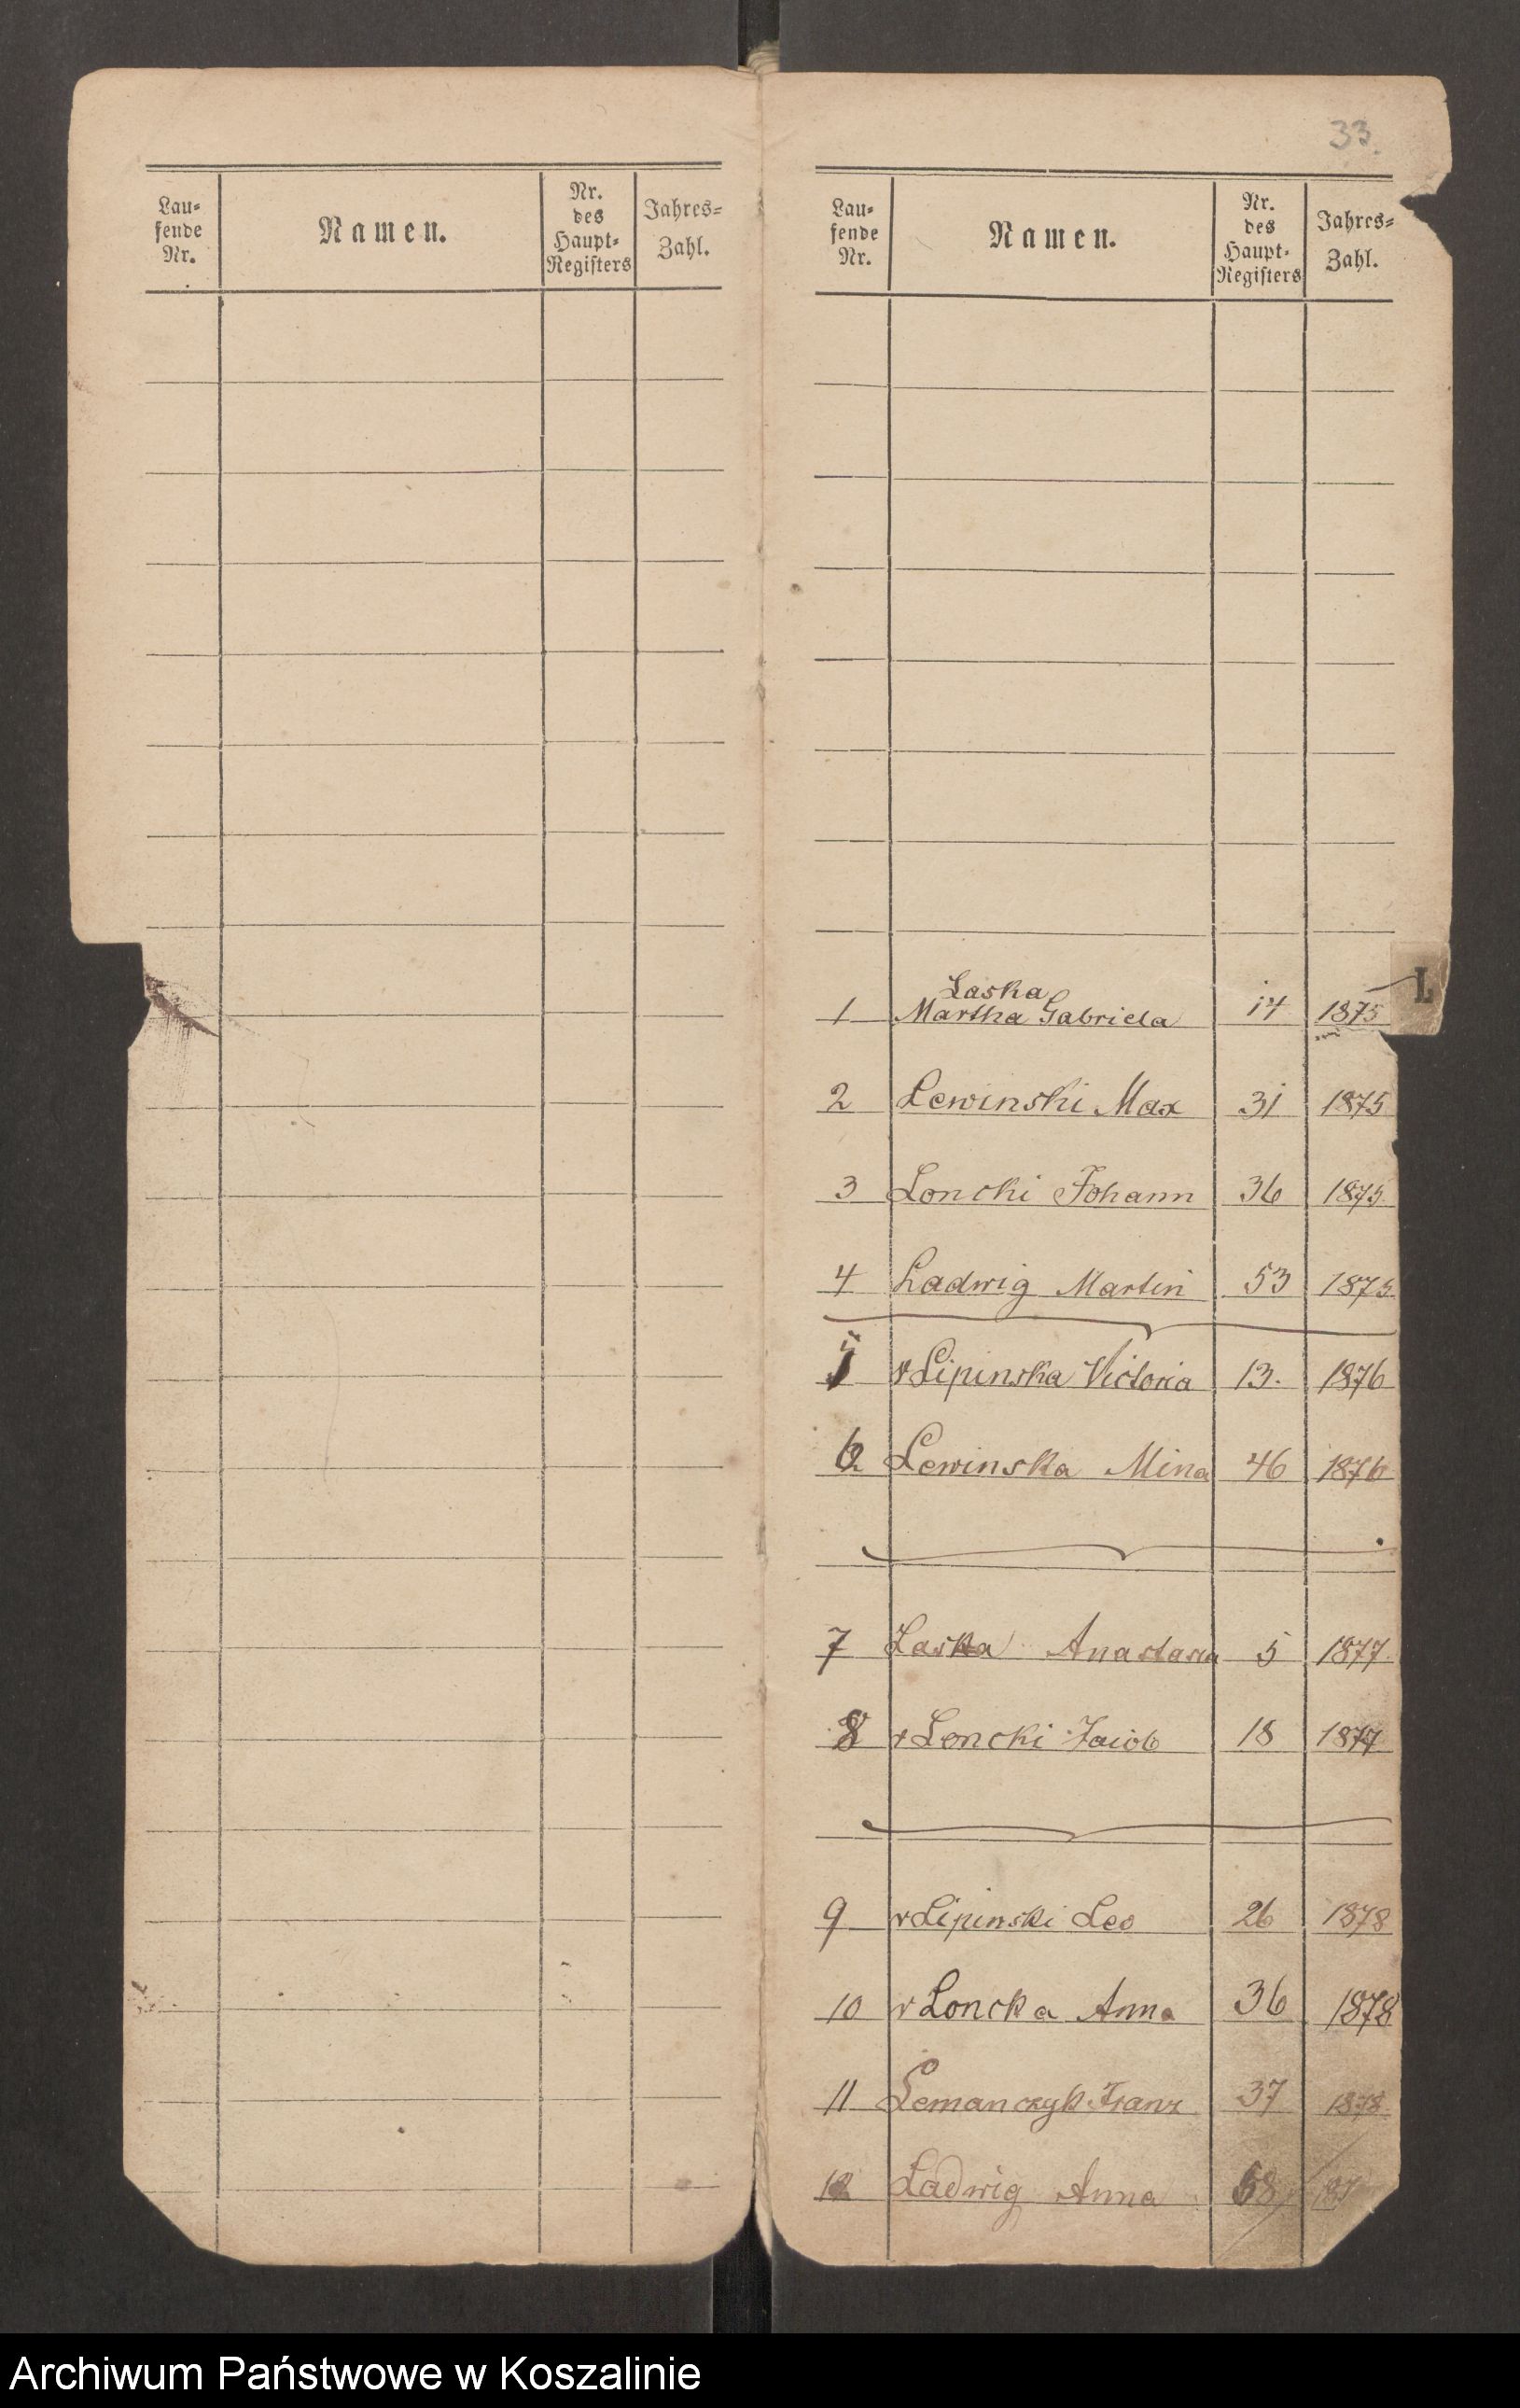 33.
Lau-
fende
Nr.
Namen.
Nr.
des
Haupt-
Registers
Jahres-
Zahl.
Lau-
fende
Nr.
Namen.
Nr.
des
Haupt-
Registers
Jahres-
Zahl.
L
Laska
1 Martha Gabriela 14 1875
2 Lewinski Max 31 1875
3 Loncki Johann 36 1875
4 Ladwig Martin 53 1875
5 v Lipinska Victoria 13. 1876
6 Lewinska Mina 46 1876
7 Laska Anastasia 5 1877
8 v Loncki Jaiob 18 1877
9 v Lipinski Leo 26 1878
10 v Loncka Anna 36 1878
11 Lemanczyk Franz 37 1878
12 Ladwig Anna 68
Archiwum Państwowe w Koszalinie